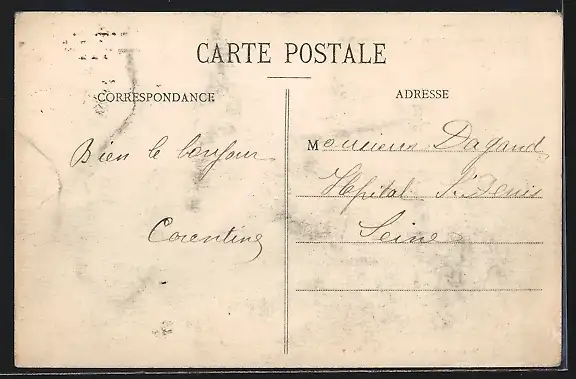 CARTE POSTALE
CORRESPONDANCE
ADRESSE
Bien le bonjour
Corentine
Monsieur Dagand
Hôpital St Denis
Seine